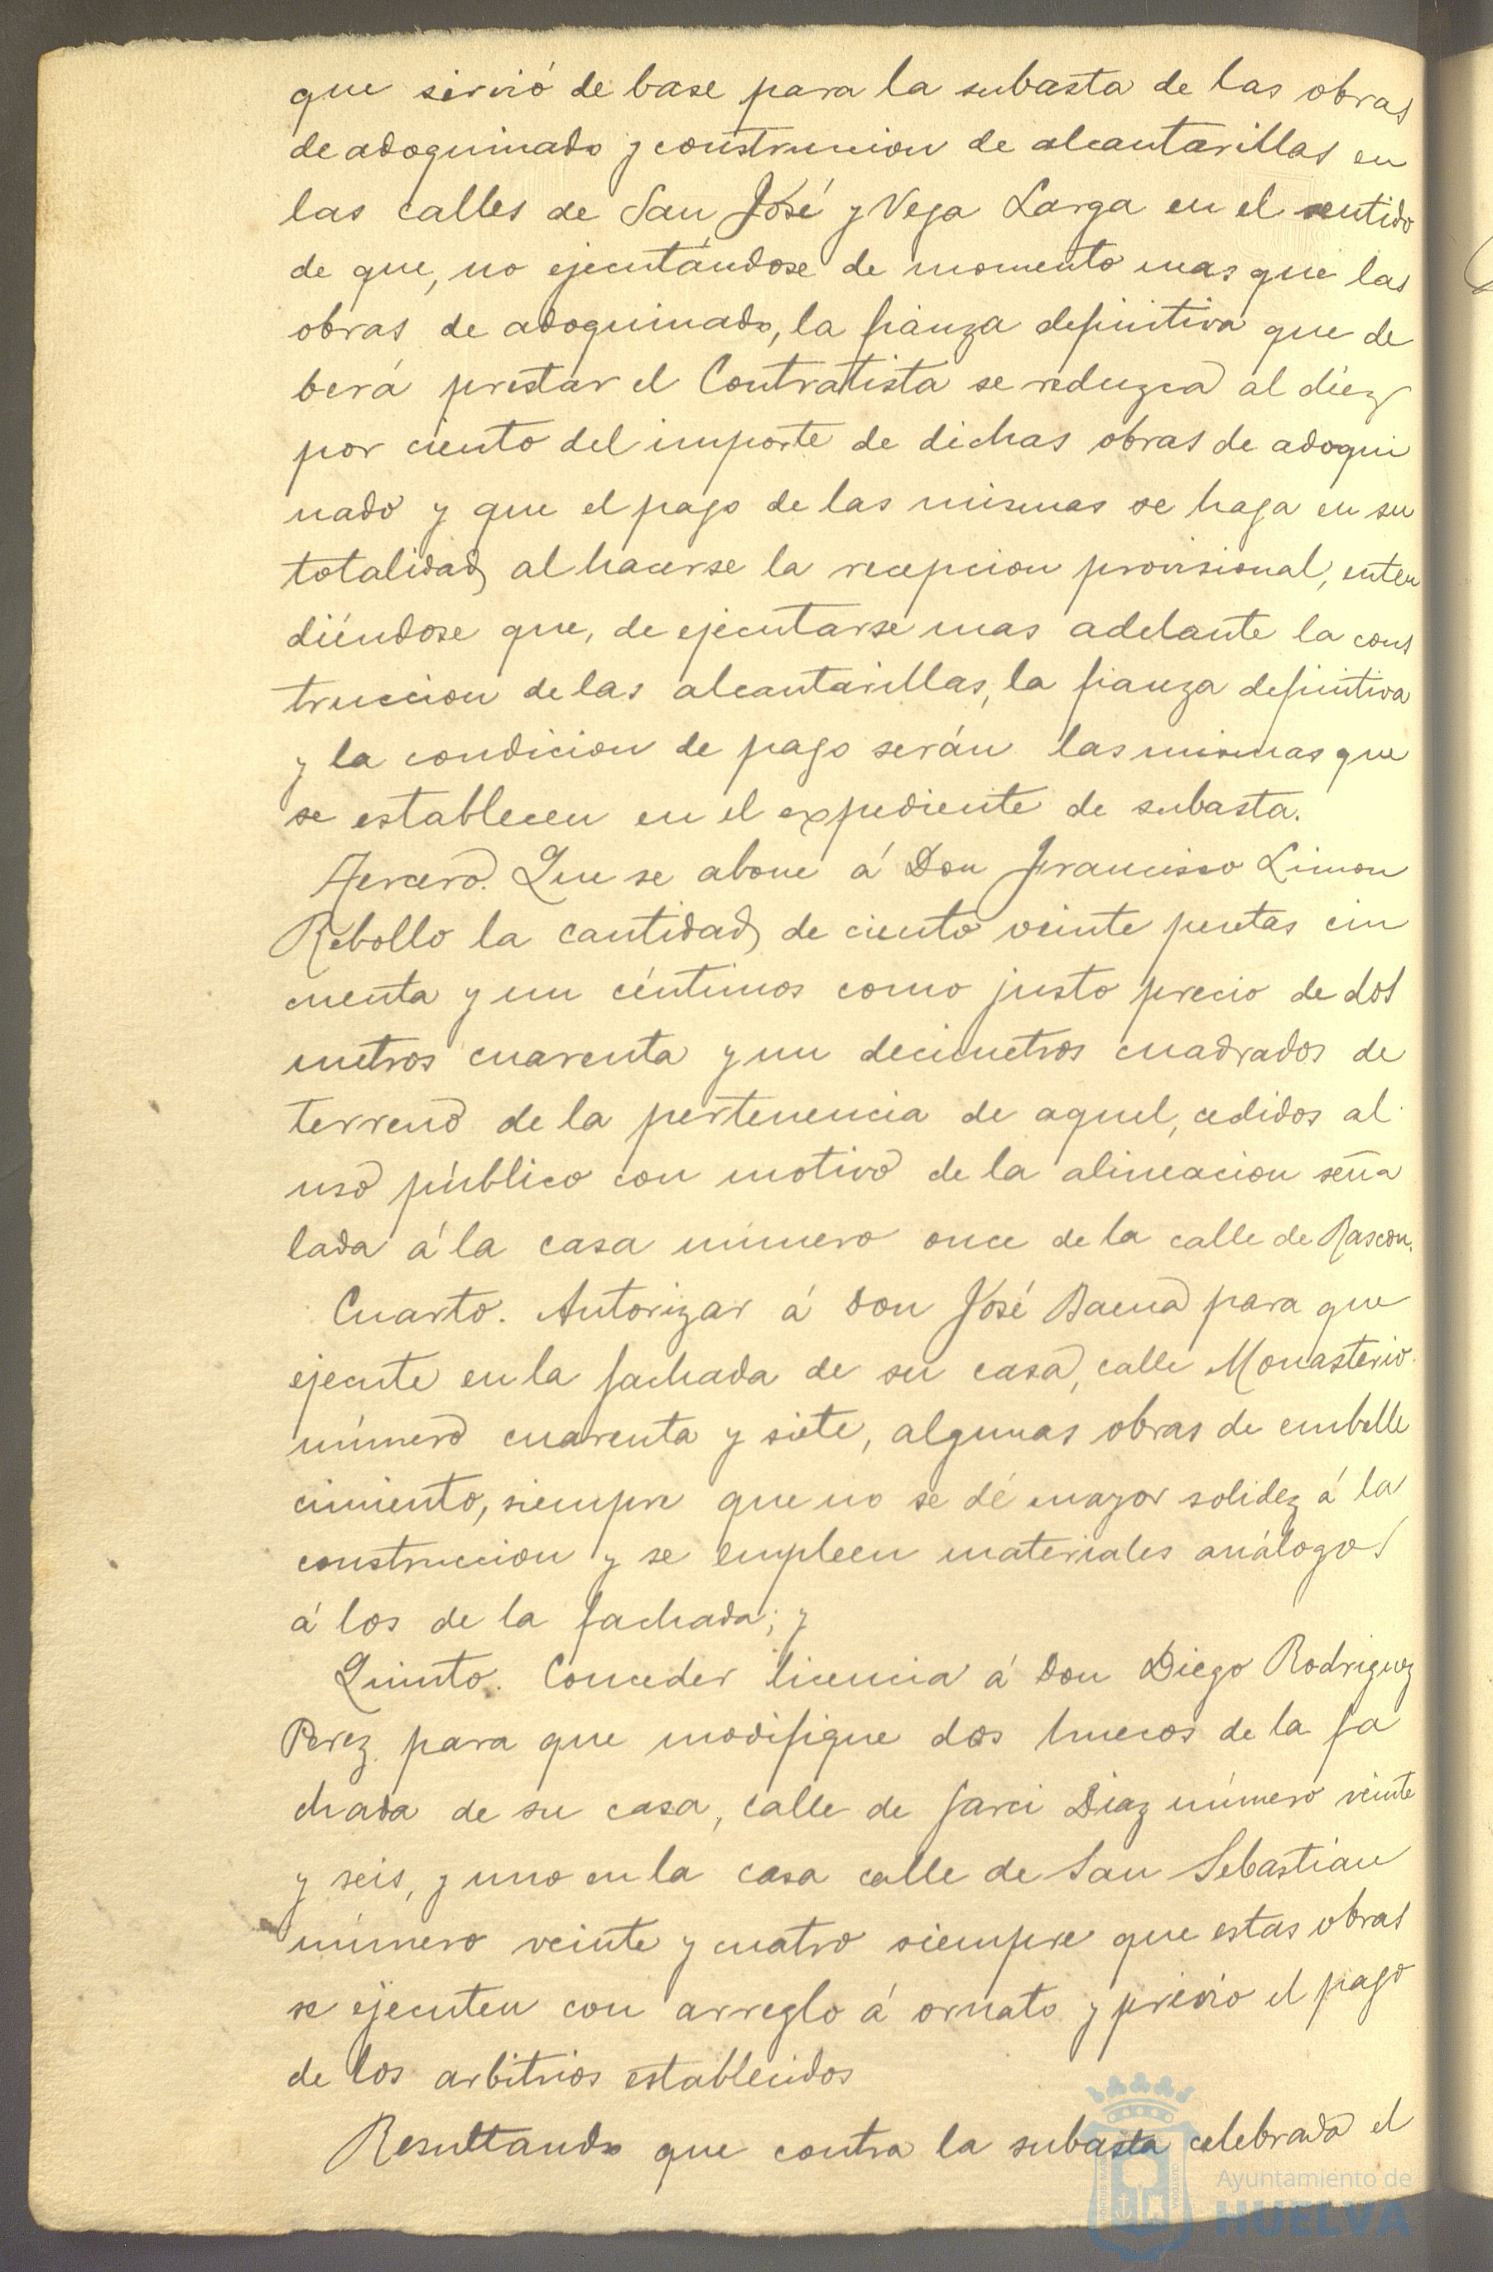 que sirvió de base para la subasta de las obras
de adoquinado y construccion de alcantarillas en
las calles de San José y Vega Larga en el sentido
de que, no ejecutándose de momento mas que las
obras de adoquinado, la fianza definitiva que de
berá prestar el Contratista se reduzca al diez
por ciento del importe de dichas obras de adoqui
nado y que el pago de las mismas se haga en su
totalidad, al hacerse la recepcion provisional, enten
diéndose que, de ejecutarse mas adelante la cons
truccion de las alcantarillas, la fianza definitiva
y la condicion de pago serán las mismas que
se establecen en el expediente de subasta.
Tercero. Que se abone á Don Francisco Limon
Rebollo la cantidad de ciento veinte pesetas cin
cuenta y un céntimos como justo precio de dos
metros cuarenta y un decimetros cuadrados de
terreno de la pertenencia de aquel, cedidos al
uso público con motivo de la alineacion seña
lada á la casa número once de la calle de Rascon.
Cuarto. Autorizar á Don José Baena para que
ejecute en la fachada de su casa, calle Monasterio
número cuarenta y siete, algunas obras de embelle
cimiento, siempre que no se dé mayor solidez á la
construccion y se empleen materiales análogos
á los de la fachada; y
Quinto. Conceder licencia á Don Diego Rodriguez
Perez para que modifique dos huecos de la fa
chada de su casa, calle de Garci Diaz número veinte
y seis, y uno en la casa calle de San Sebastian
número veinte y cuatro siempre que estas obras
se ejecuten con arreglo á ornato y previo el pago
de los arbitrios establecidos
Resultando que contra la subasta celebrada el
Ayuntamiento de
HUELVA